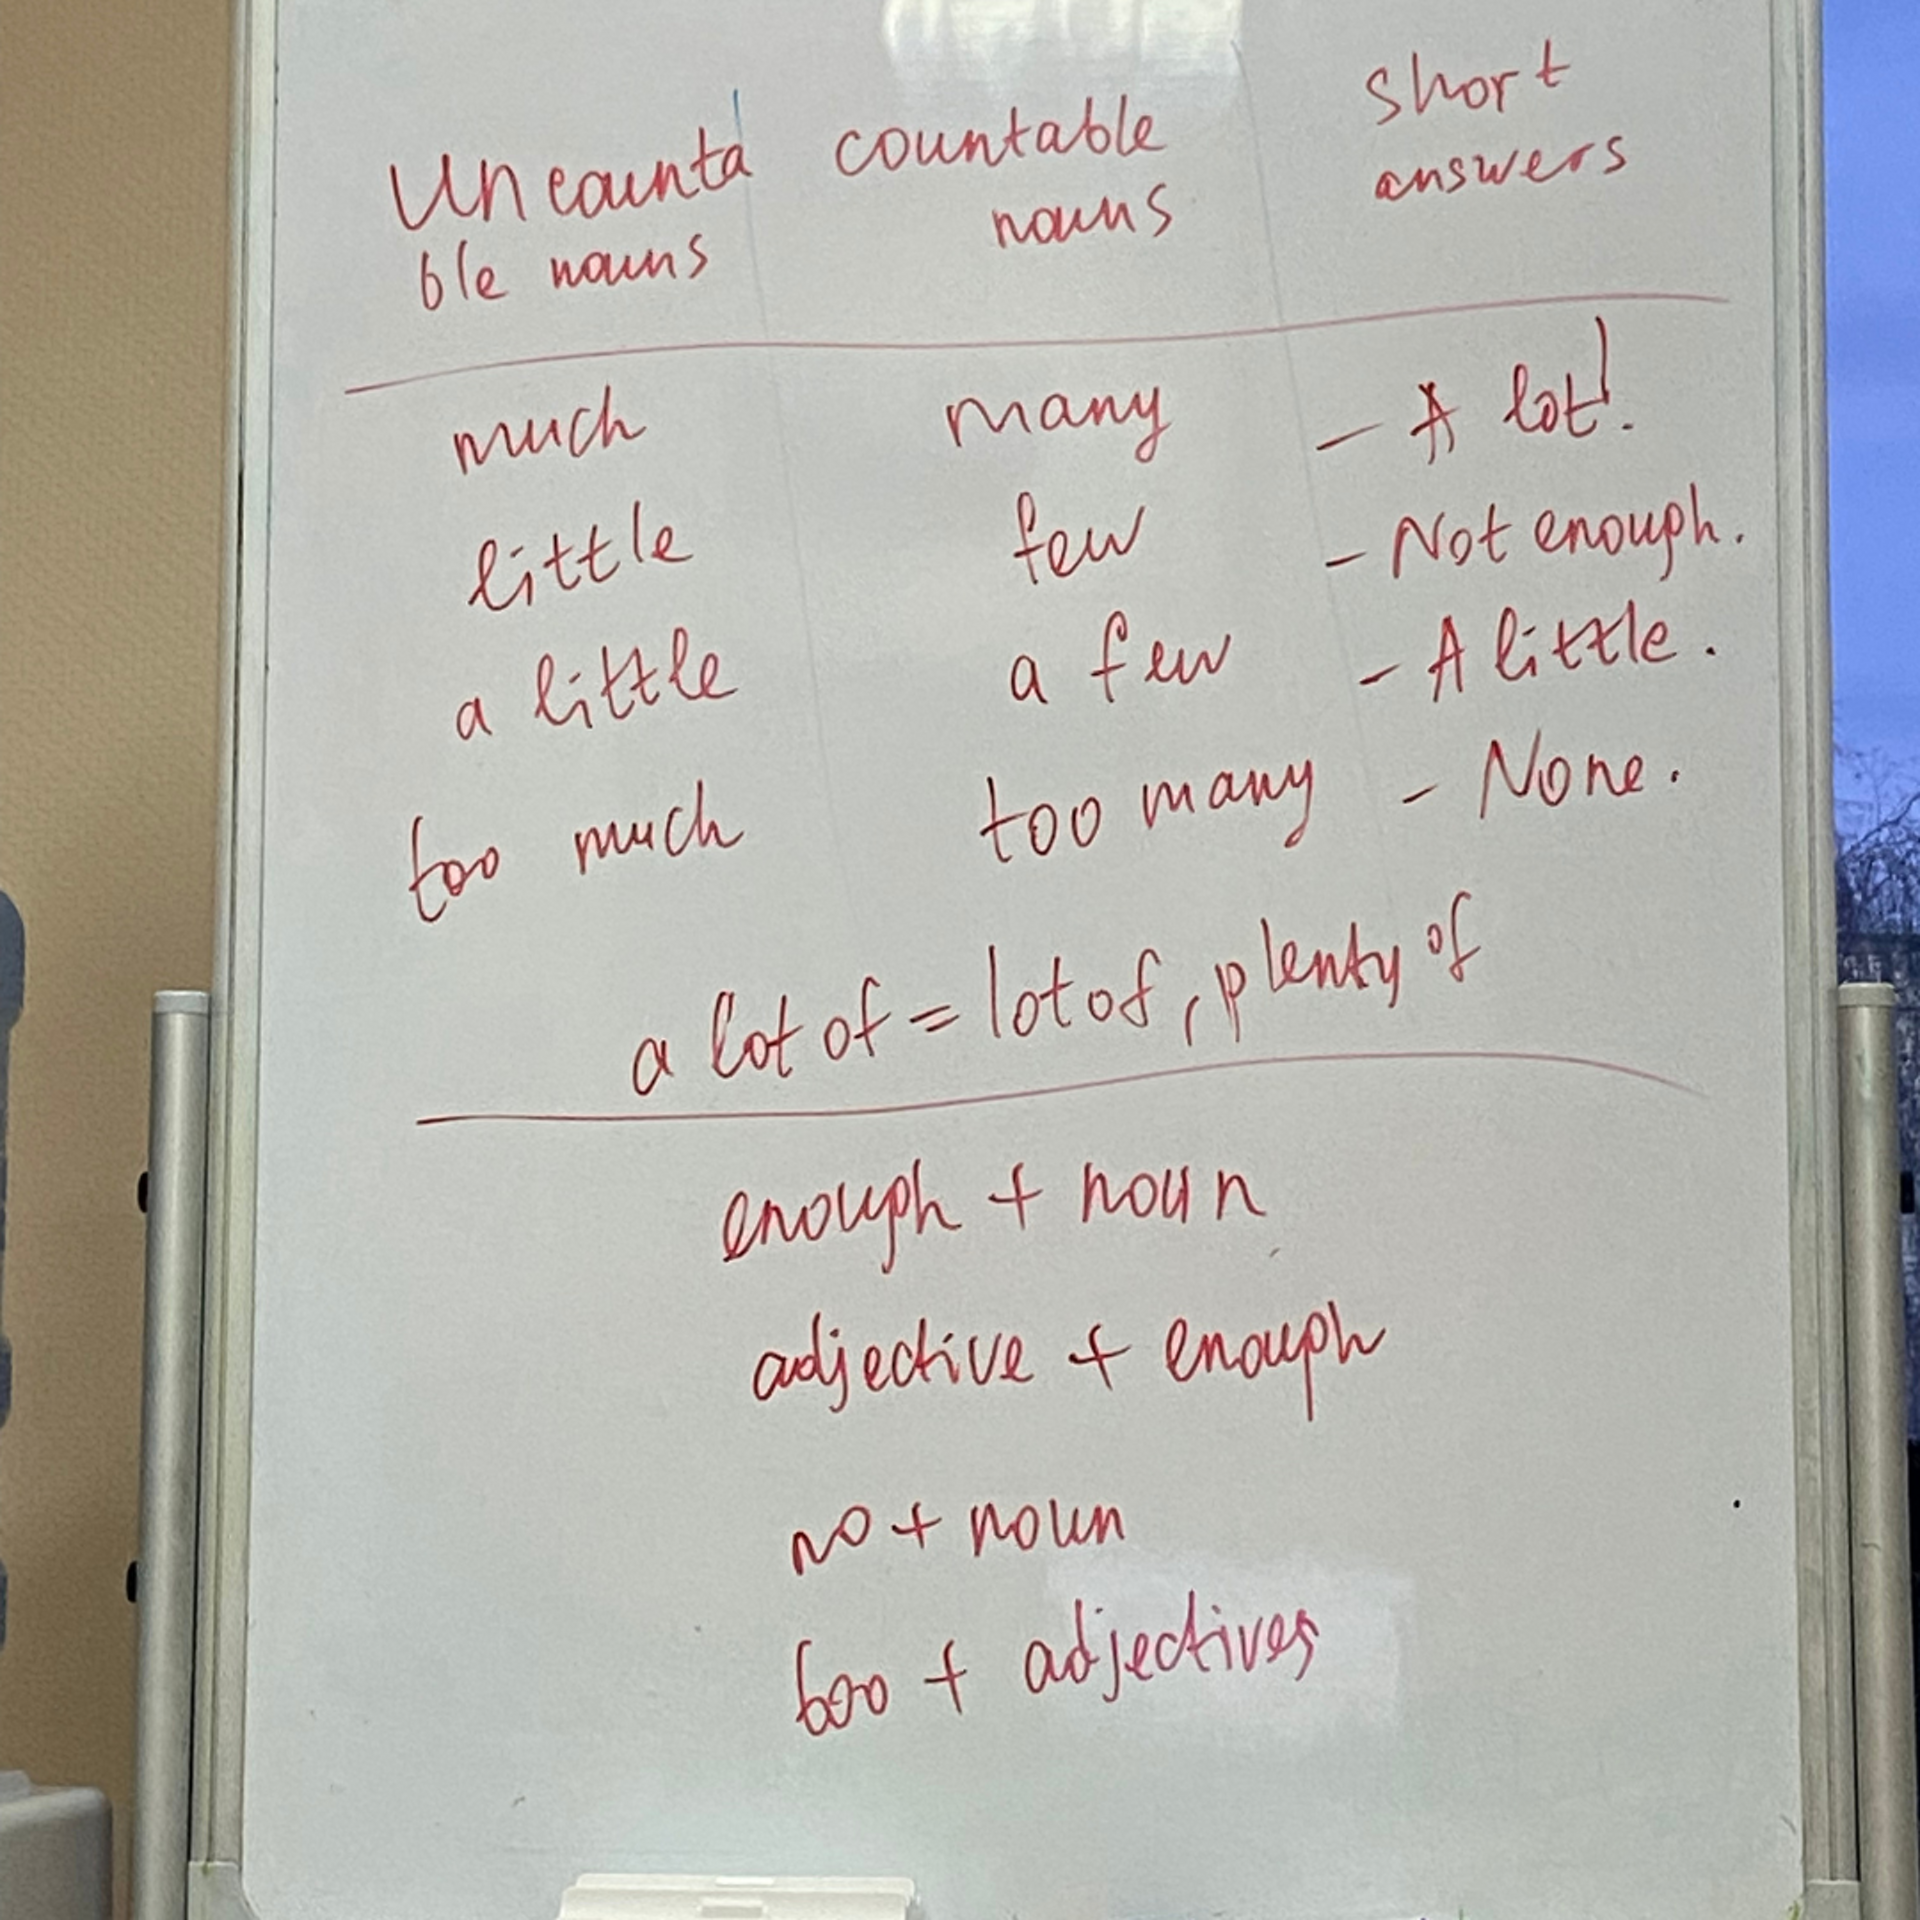 Uncounta countable short
ble nouns nouns answers
much many - A lot!.
little few - Not enough.
a little a few - A little.
too much too many - None.
a lot of = lot of, plenty of
enough + noun
adjective + enough
no + noun
too + adjectives